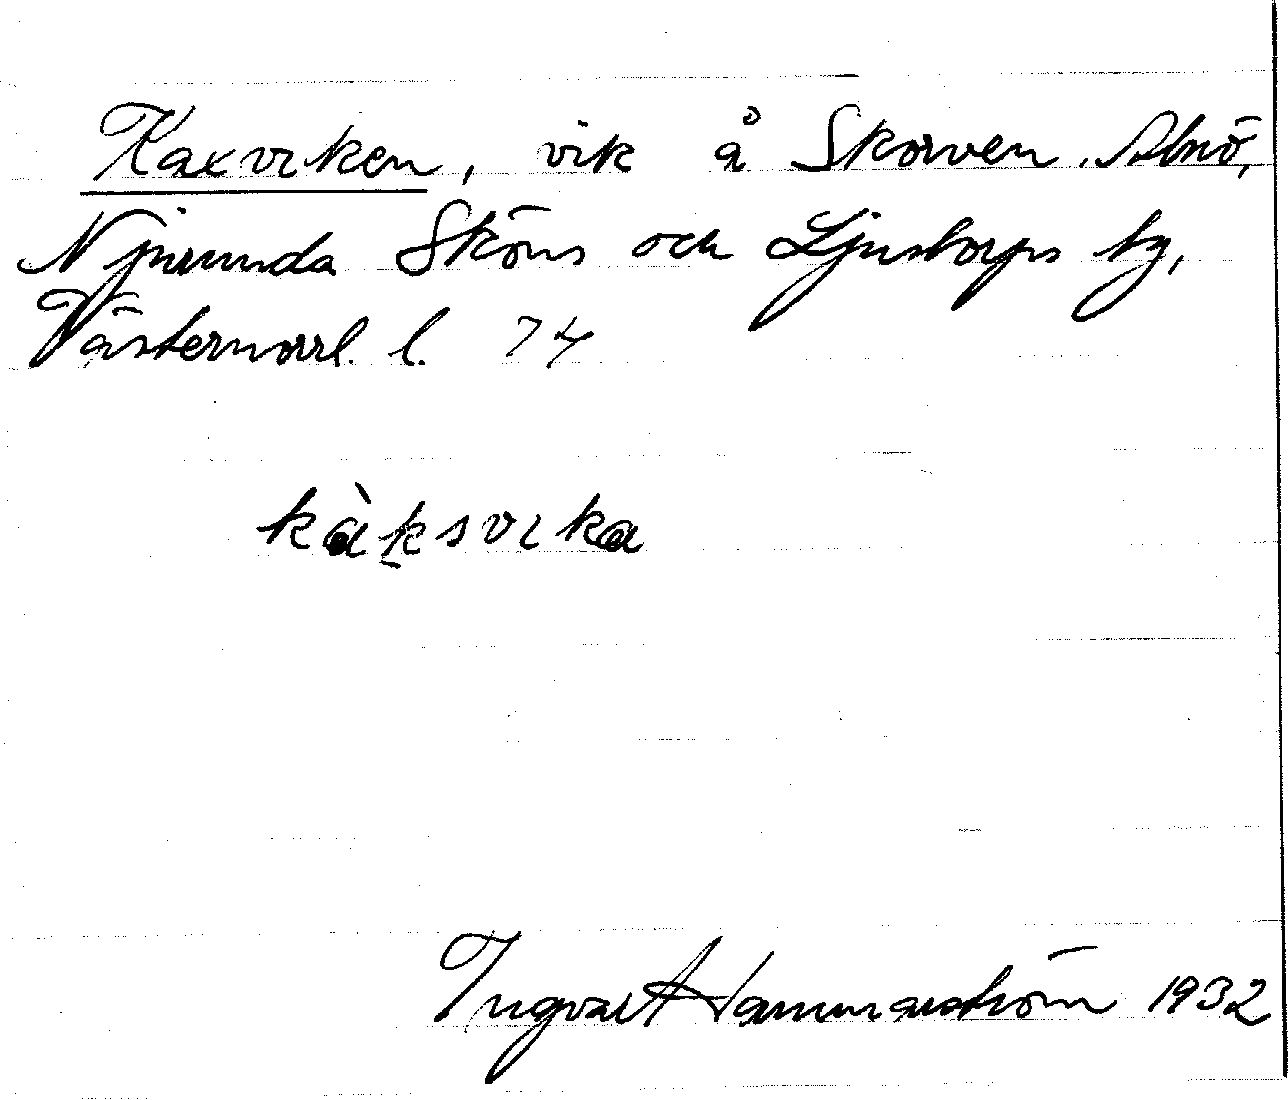 Kaxviken, vik å Skorven. Alnö,
Njurunda Sköns och Ljustorps tg,
Västernorrl. l. 74
kàksvika
Ingvar Hammarström 1932